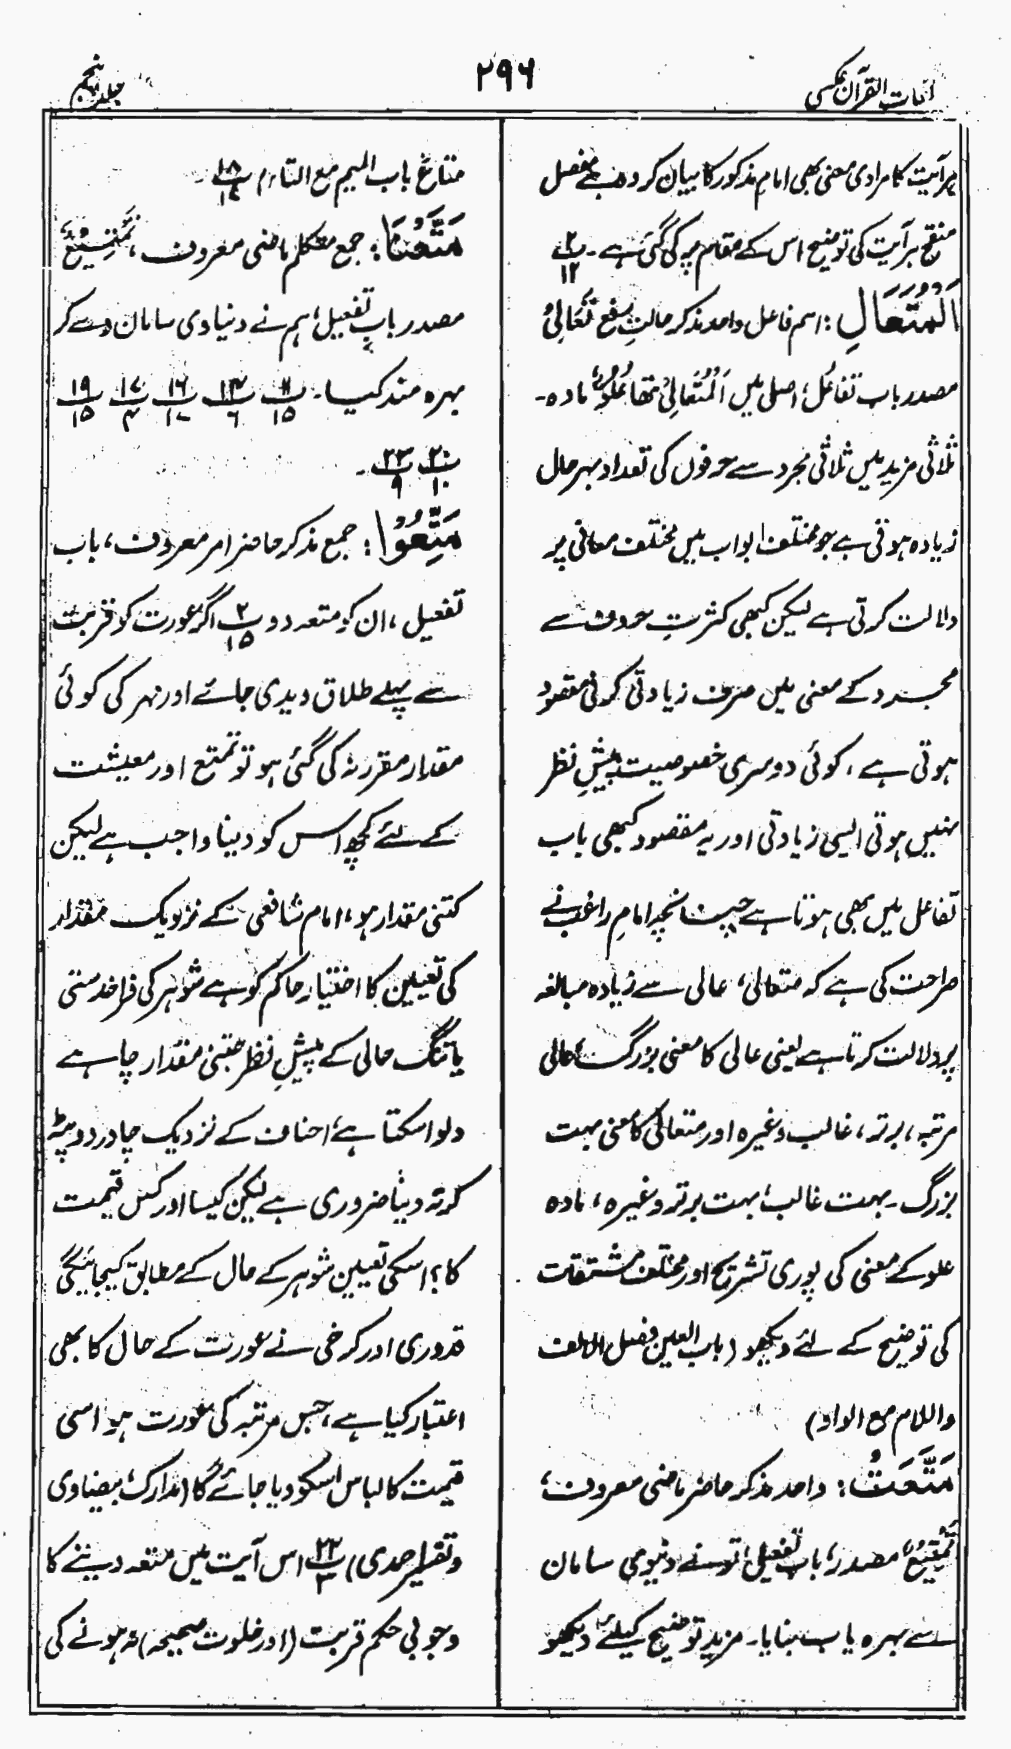 لغات القرآن عکسی
۲۹۶
جلد پنجم
پر آیت کا مرادی معنی بھی امام مذکور کا بیان کردہ ہے مفصل
منقح ہر آیت کی توضیح اس کے مقام پر کی گئی ہے۔ ۲/۱۲
اَلْمُتَعَالِ: اسم فاعل واحد مذکر حالتِ رفع تَعَالِیْ
مصدر باب تفاعل، اصل میں اَلْمُتَعَالِیُ تھا عُلُوٌّ مادہ۔
ثلاثی مزید میں ثلاثی مجرد سے حرفوں کی تعداد بہر حال
زیادہ ہوتی ہے جو مختلف ابواب میں مختلف معانی پر
دلالت کرتی ہے لیکن کبھی کثرتِ حروف سے
مجرد کے معنی میں صرف زیادتی کرنی مقصود
ہوتی ہے، کوئی دوسری خصوصیت پیشِ نظر
نہیں ہوتی ایسی زیادتی اور یہ مقصود کبھی باب
تفاعل میں بھی ہوتا ہے چنانچہ امام راغب نے
صراحت کی ہے کہ متعالی، عالی سے زیادہ مبالغہ
پر دلالت کرتا ہے یعنی عالی کا معنی بزرگ، عالی
مرتبہ، برتر، غالب وغیرہ اور متعالی کا معنی بہت
بزرگ۔ بہت غالب، بہت برتر وغیرہ، مادہ
علو کے معنی کی پوری تشریح اور مختلف مشتقات
کی توضیح کے لئے دیکھو (باب العین فصل الالف
واللام مع الواو)
مَتَّعْتَ: واحد مذکر حاضر ماضی معروف،
تَمْتِیْعٌ مصدر، باب تفعیل، تو نے دنیوی سامان
سے بہرہ یاب بنایا۔ مزید توضیح کیلئے دیکھو
متاعٌ باب المیم مع التاء، ۱۸/۱۷۔
مَتَّعْنَا: جمع متکلم ماضی معروف، تَمْتِیْعٌ
مصدر باب تفعیل، ہم نے دنیاوی سامان دے کر
بہرہ مند کیا۔ ۱۱/۱۵ ۱۴/۶ ۱۶/۱۰ ۱۷/۴ ۱۹/۱۵
۲۰/۱۰ ۲۳/۹۔
مَتِّعُوْا: جمع مذکر حاضر امر معروف، باب
تفعیل، ان کو متعہ دو ۲/۱۵ اگر عورت کو قربت
سے پہلے طلاق دیدی جائے اور مہر کی کوئی
مقدار مقرر نہ کی گئی ہو تو تمتع اور معیشت
کے لئے کچھ اس کو دینا واجب ہے لیکن
کتنی مقدار ہو، امام شافعی کے نزدیک مقدار
کی تعیین کا اختیار حاکم کو ہے شوہر کی فراخدستی
یا تنگ حالی کے پیشِ نظر جتنی مقدار چاہے
دلوا سکتا ہے، احناف کے نزدیک چادر دوپٹہ
کرتہ دینا ضروری ہے لیکن کیسا اور کس قیمت
کا؟ اسکی تعیین شوہر کے حال کے مطابق کیجائیگی
قدوری اور کرخی نے عورت کے حال کا بھی
اعتبار کیا ہے، جس مرتبہ کی عورت ہو اسی
قیمت کا لباس اسکو دیا جائے گا (مدارک، بیضاوی
و تفسیر احمدی) ۲۲/۳ اس آیت میں متعہ دینے کا
وجوبی حکم قربت (اور خلوت صحیحہ) نہ ہونے کی